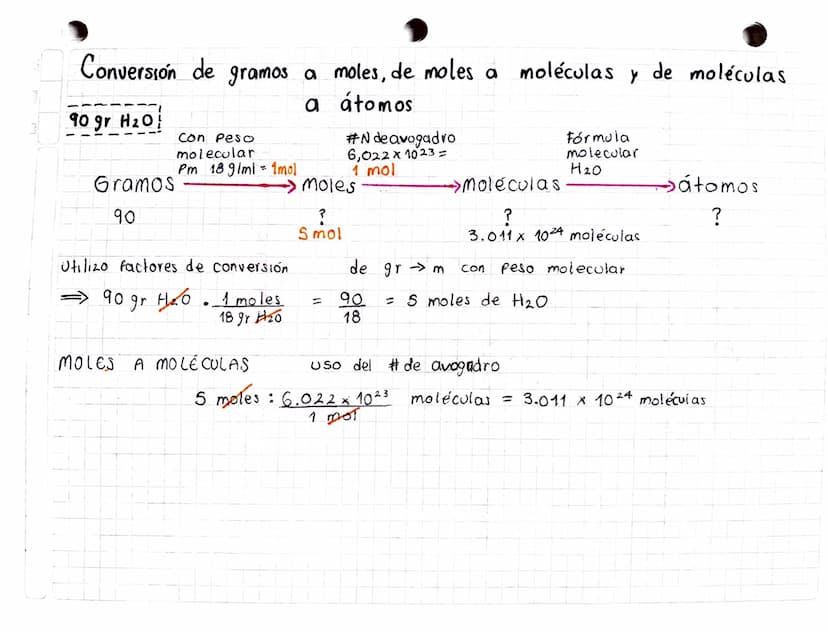 Conversión de gramos a moles, de moles a moléculas y de moléculas
a átomos
90 gr H2O!
Con Peso molecular Pm 18 g/ml = 1mol
#N deavogadro 6,022 x 10²³ = 1 mol
Fórmula molecular H2O
Gramos → moles → moléculas → átomos
90 ? ? ?
5 mol 3.011 x 10²⁴ moléculas
Utilizo factores de conversión de gr → m con peso molecular
⇒ 90 gr H2O . 1 moles / 18 gr H2O = 90 / 18 = 5 moles de H2O
MOLES A MOLÉCULAS uso del # de avogadro
5 moles : 6.022 x 10²³ / 1 mol moléculas = 3.011 x 10²⁴ moléculas